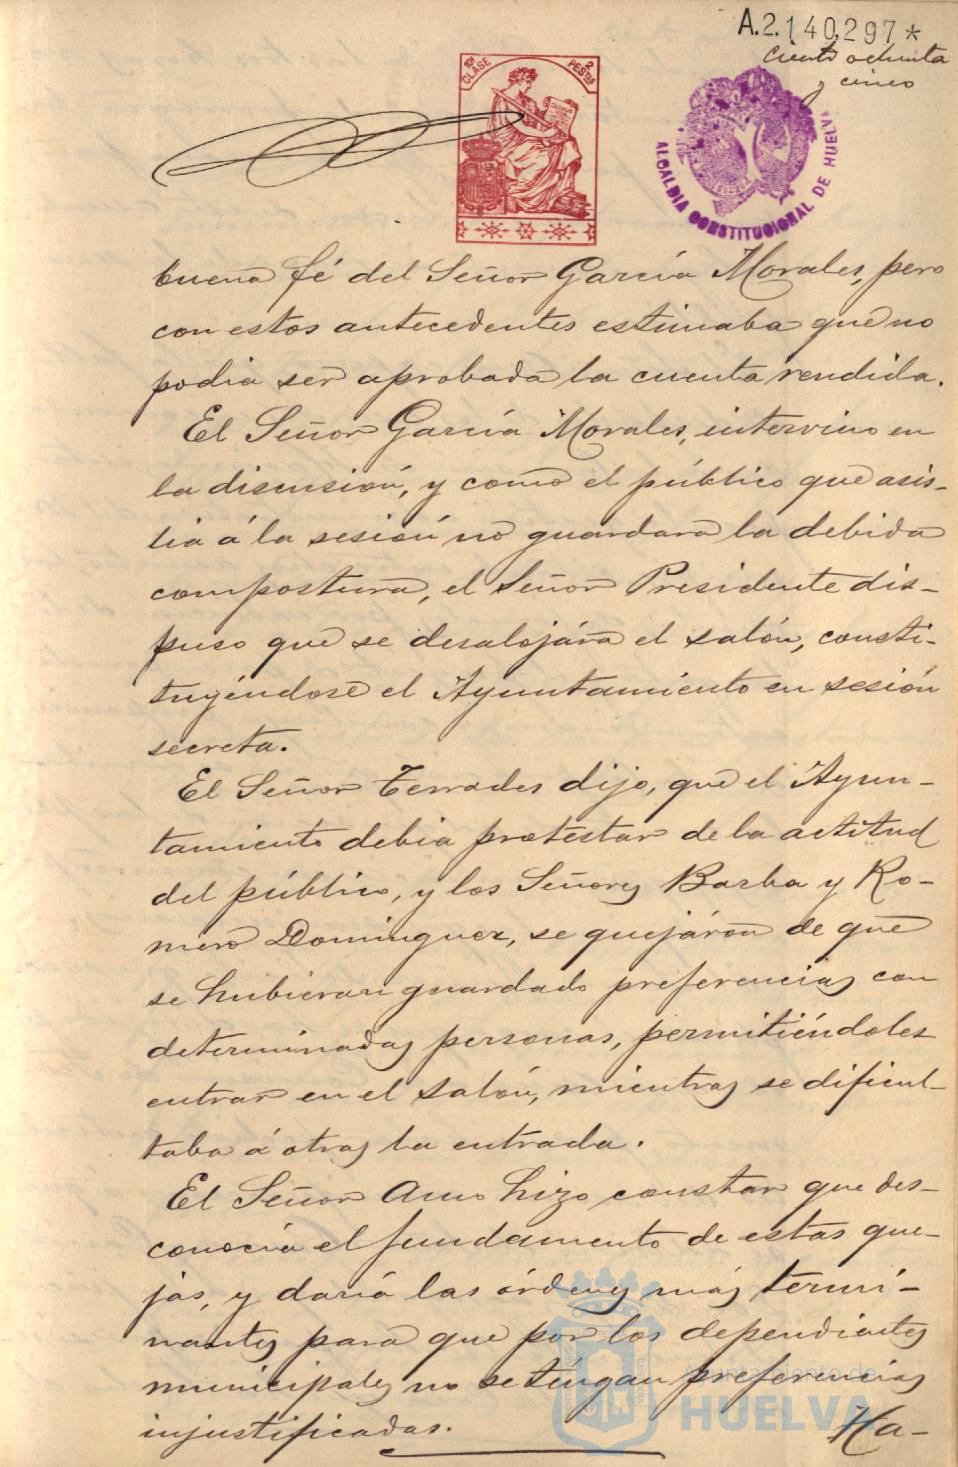 A.2.140,297*
ciento ochenta
y cinco
10ª CLASE
2 PESTAS
ALCALDIA CONSTITUCIONAL DE HUELVA
buena fé del Señor García Morales, pero
con estos antecedentes estimaba que no
podia ser aprobada la cuenta rendida.
El Señor García Morales, intervino en
la discusión, y como el público que asis-
tia á la sesión no guardara la debida
compostura, el Señor Presidente dis-
puso que se desalojára el salón, consti-
tuyéndose el Ayuntamiento en sesión
secreta.
El Señor Terrades dijo, que el Ayun-
tamiento debia protestar de la actitud
del público, y los Señores Barba y Ro-
mero Dominguez, se quejáron de que
se hubieran guardado preferencias con
determinadas personas, permitiéndoles
entrar en el salón, mientras se dificul-
taba á otras la entrada.
El Señor hizo constar que des-
conocia el fundamento de estas que-
jas, y daría las órdenes más termi-
nantes para que por los dependientes
municipales no se téngan preferencias
injustificadas.
Ha-
Ayuntamiento de
HUELVA